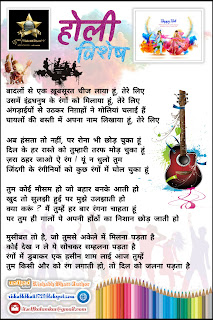 होली
विशेष
बादलों से एक खूबसूरत चीज लाया हूं, तेरे लिए
उसमें इंद्रधनुष के रंगों को मिलाया हूं, तेरे लिए
अंगड़ाईयों से उठकर निशानों ने गोलियां चलाई हैं
पायलों की बस्ती में अपना नाम लिखाया हूं, तेरे लिए
अब हंसता तो नहीं, पर रोना भी छोड़ चुका हूं
दिल के हर रास्ते को तुम्हारी तरफ मोड़ चुका हूं
ज़रा ठहर जाओ ऐ रंग ! यूं न घुलो तुम
जिंदगी के रंगीनियों को कुछ रंगों में घोल चुका हूं
तुम कोई मौसम हो जो बहार बनके आती हो
खुद तो सुलझी हुई पर मुझे उलझाती हो
क्या करूं मैं तुम्हें हर बार रंगना चाहता हूं
पर तुम ही गालों पे अपनी होंठों का निशान छोड़ जाती हो
मुसीबत तो है, जो तुमसे अकेले में मिलना पड़ता है
कोई देख न ले ये सोचकर सम्हलना पड़ता है
रंगों में डूबाकर एक हसीन शाम लाई आज तुम्हें
तुम किसी और को रंग लगाती हो, तो दिल को जलना पड़ता है